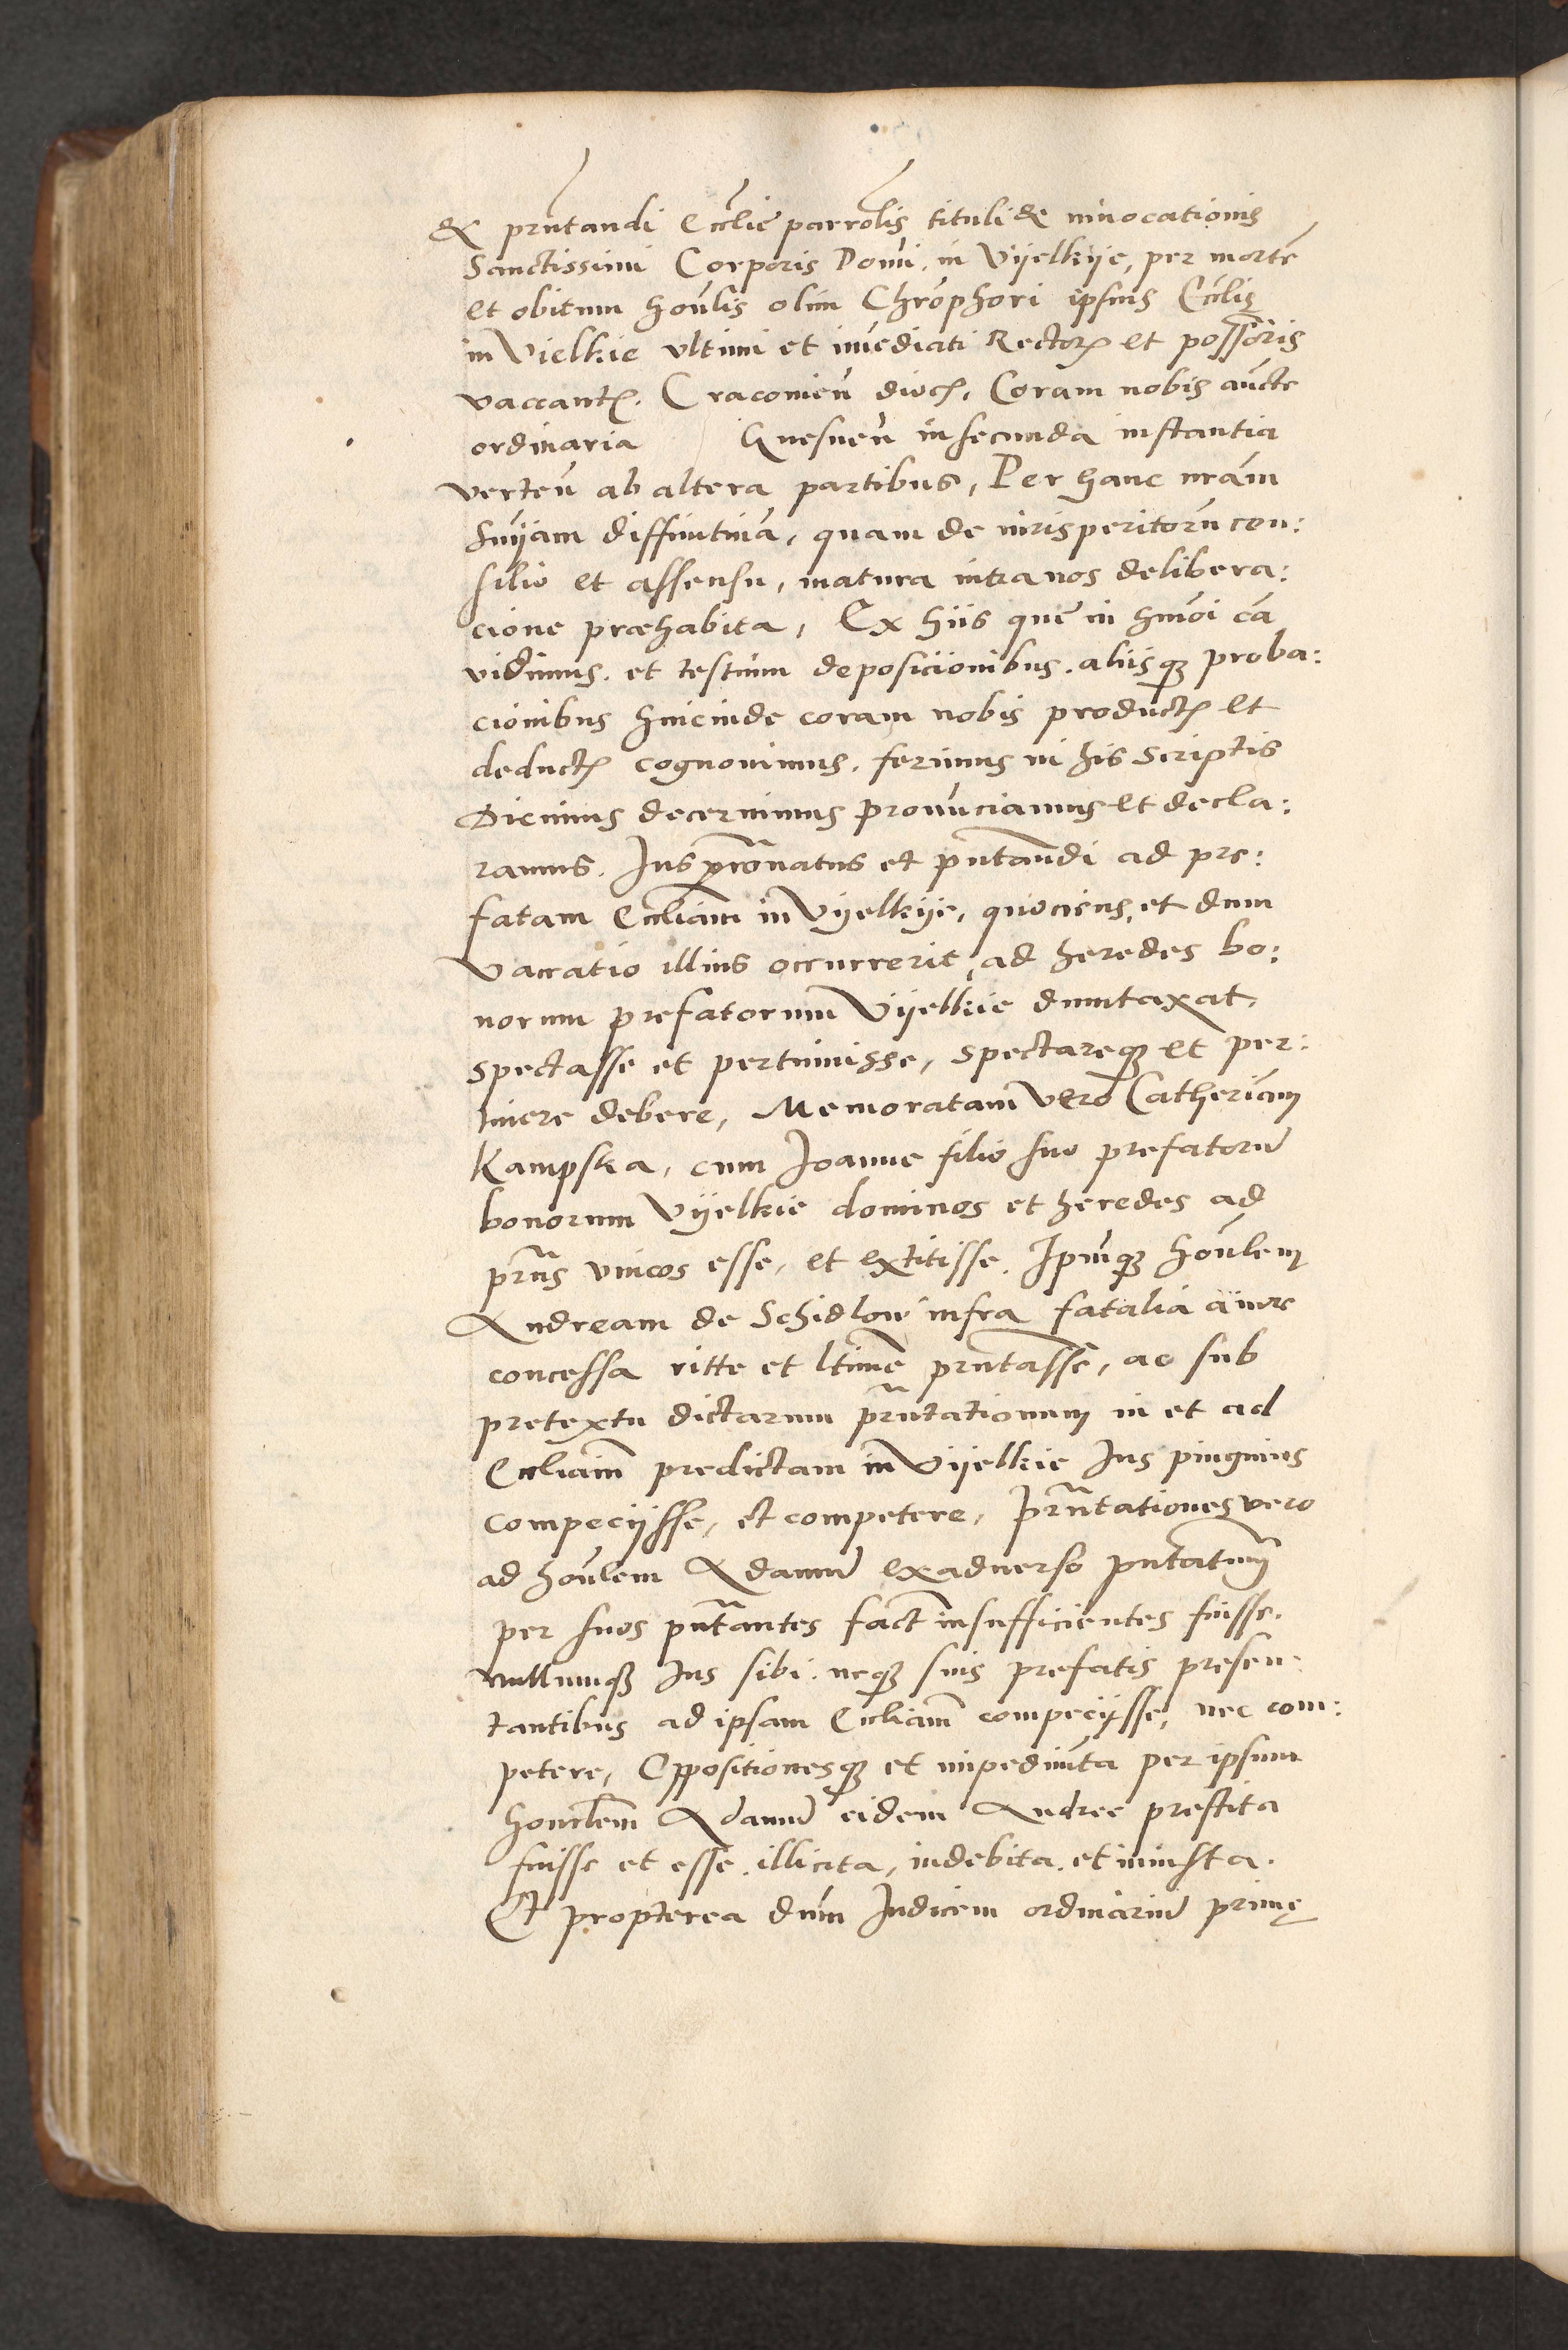 & pñtandi Ecclie parrolis tituli & invocationis
Sanctissimi Corporis Domi. in Vijelkije, per mortē
et obitum honlis olim Chrophori ipsius Ecclie
in Vielkie ultimi et immediati Rectoris et possoris
vaccantis. Cracovien dioces. Coram nobis aucte
ordinaria Gnesnen in secunda instantia
verten ab altera partibus, Per hanc nrām
Snijam diffinitivā, quam de iurisperitorū con:
silio et assensu, matura intra nos delibera:
cione præhabita, Ex hiis que in hmoi cā
vidimus. et testium deposicionibus. aliisq; proba:
cionibus hincinde coram nobis productis et
deductis cognovimus. ferimus in his scriptis
Dicimus decernimus pronūciamus et decla:
ramus. Ius pronatus et pntandi ad pre:
fatam Eccliam in Vijelkije, quociens, et dum
vaccatio illius occurrerit, ad heredes bo:
norum prefatorum Vijelkie dumtaxat,
spectasse et pertinuisse, spectareq; et per:
tinere debere, Memoratam vero Catherinam
Kampska, cum Joanne filio suo prefatorū
bonorum Vijelkie dominos et heredes ad
prns unicos esse, et extitisse. Ipmq; honlem
Andream de Schidlow infra fatalia a iure
concessa ritte et ltime pñtasse, ac sub
pretextu dictarum prñtationum in et ad
Eccliam predictam in Vijelkie Ius pinguius
compeciisse, et competere, Prñtationes vero
ad honlem Adamū ex adverso pntatum
per suos pntantes fact insufficientes fuisse.
nullumq; Ius sibi. neq; suis prefatis presen:
tantibus ad ipsam Eccliam compeciisse, nec com:
petere, Oppositionesq; et impedimta per ipsum
honlem Adamū eidem Andree prestita
fuisse et esse illicita, indebita. et iniusta.
Et propterea dnm Iudicem ordinariū primę